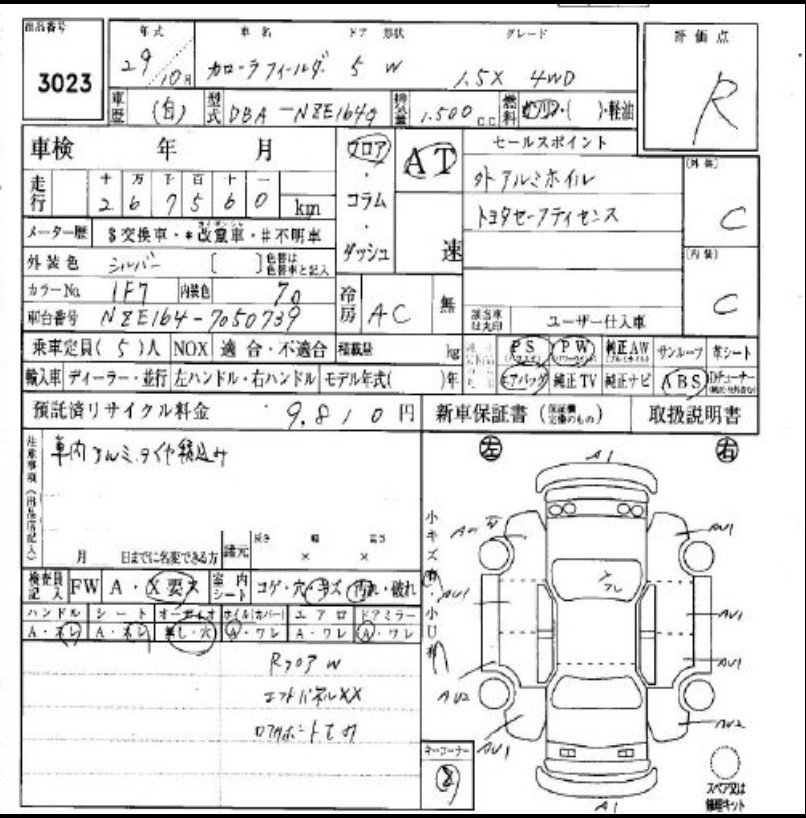 出品番号 年式 車名 ドア 形状 グレード 評価点
3023 29/10月 カローラフィールダー 5 W 1.5X 4WD R
車歴 (自) 型式 DBA-NZE164G 排気量 1.500 c.c 燃料 ガソリン・( )・軽油
車検 年 月 フロア・コラム・ダッシュ AT 速 セールスポイント
走行 十 万 千 百 十 一
2 6 7 5 6 0 km
外アルミホイル
トヨタセーフティセンス
(外装) C
メーター歴 $交換車・*改竄車・#不明車
外装色 シルバー [ ] 色替は色替車と記入
(内装) C
カラーNo. 1F7 内装色 70 冷房 AC 無
車台番号 NZE164-7050739 該当車は丸印 ユーザー仕入車
乗車定員( 5 )人 NOX 適合・不適合 積載量 kg PS PW 純正AW サンルーフ 革シート
輸入車 ディーラー・並行 左ハンドル・右ハンドル モデル年式( )年 エアバッグ 純正TV 純正ナビ ABS
預託済リサイクル料金 9,810円 新車保証書 取扱説明書
注意事項(出品店記入)
車内アルミ、タイヤ積込み
月 日までに名変できる方 諸元 長さ 幅 高さ
× ×
検査員記入 FW A・X要X 室内シート コゲ・穴・キズ 汚れ・破れ
ハンドル シート オーディオ ホイル(カバー) エアロ ドアミラー
A・スレ A・スレ 無し・穴 A・ワレ A・ワレ A・ワレ
RフロアW
エンドパネルXX
左 右
小キズ有・小U有
A1
AU1
AU1
AU1
AU1
AU2
AU2
AU1
A1
キーコーナー
スペア又は
修理キット